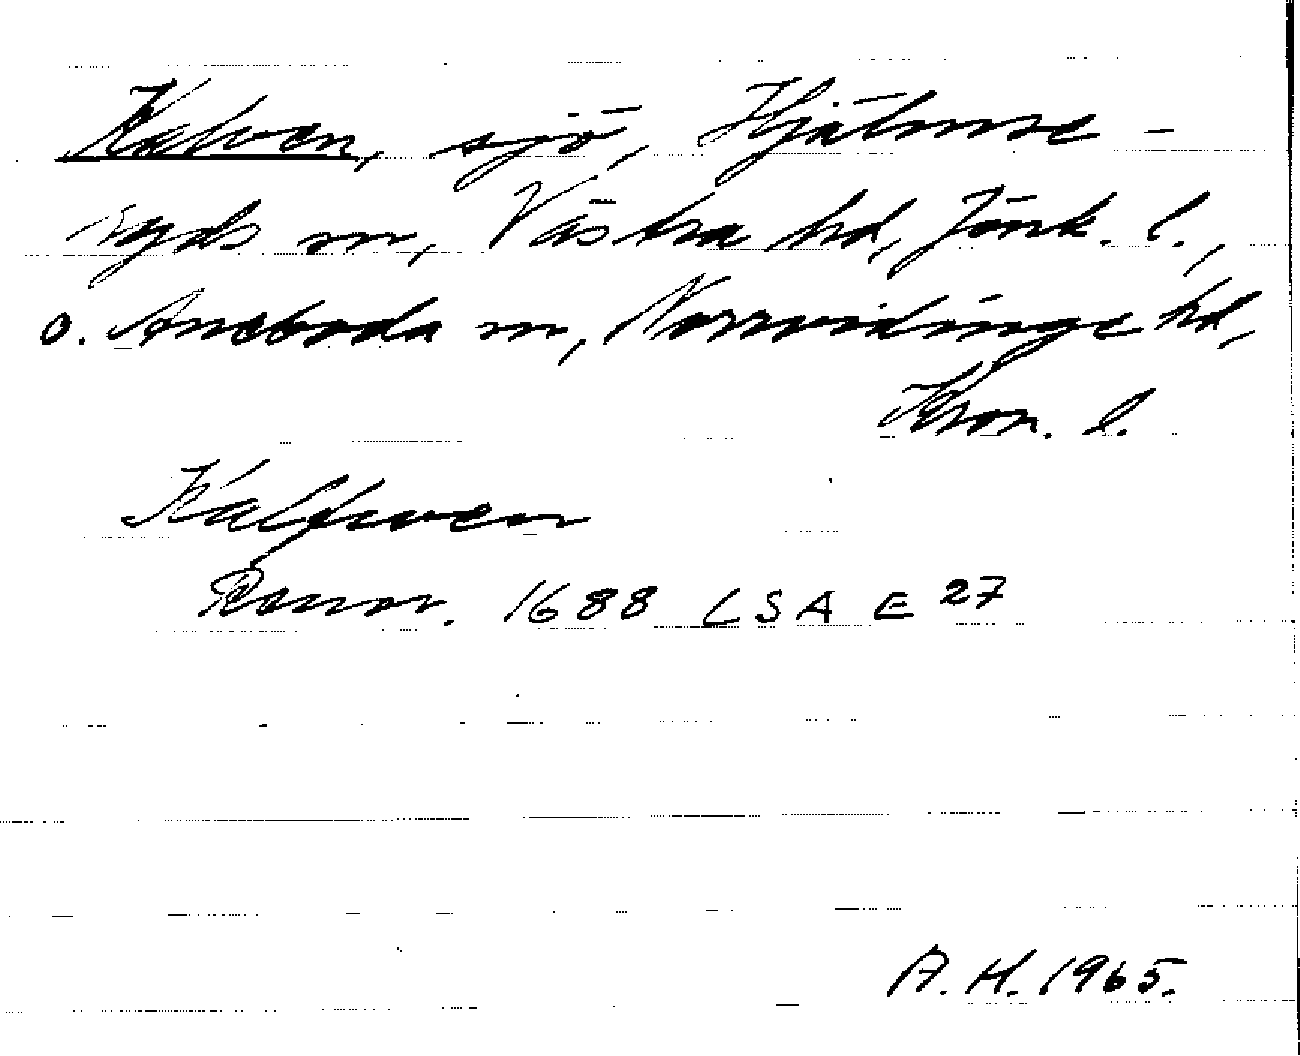 Kalven, sjö, Hjälmse-
ryds sn, Västra hd, Jönk. l.,
o. Aneboda sn, Norrvidinge hd,
Kron. l.
Kalfwen
Rannr. 1688 LSA E 27
A.H. 1965.